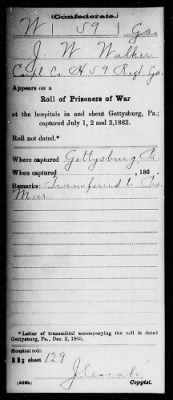 (Confederate.)
W | 59 | Ga.
J. W. Walker
Corpl. Co. H 59 Regt. Ga.
Appears on a
Roll of Prisoners of War
at the hospitals in and about Gettysburg, Pa.;
captured July 1, 2 and 3, 1863.
Roll not dated.*
Where captured Gettysburg Pa.
When captured , 186 .
Remarks: Transferred to Pro.
Mar
*Letter of transmittal accompanying the roll is dated
Gettysburg, Pa., Dec. 2, 1863.
Hospital roll:
sheet 129
Copyist.